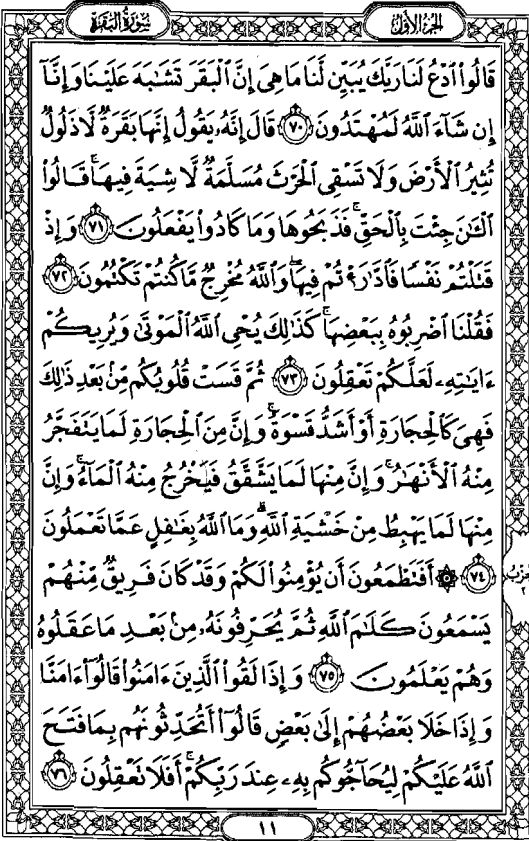 الجزء الأول
سورة البقرة
قَالُوا۟ ٱدْعُ لَنَا رَبَّكَ يُبَيِّن لَّنَا مَا هِىَ إِنَّ ٱلْبَقَرَ تَشَٰبَهَ عَلَيْنَا وَإِنَّآ
إِن شَآءَ ٱللَّهُ لَمُهْتَدُونَ ٧٠ قَالَ إِنَّهُۥ يَقُولُ إِنَّهَا بَقَرَةٌ لَّا ذَلُولٌ
تُثِيرُ ٱلْأَرْضَ وَلَا تَسْقِى ٱلْحَرْثَ مُسَلَّمَةٌ لَّا شِيَةَ فِيهَا ۚ قَالُوا۟
ٱلْـَٰٔنَ جِئْتَ بِٱلْحَقِّ ۚ فَذَبَحُوهَا وَمَا كَادُوا۟ يَفْعَلُونَ ٧١ وَإِذْ
قَتَلْتُمْ نَفْسًا فَٱدَّٰرَْٰٔتُمْ فِيهَا ۖ وَٱللَّهُ مُخْرِجٌ مَّا كُنتُمْ تَكْتُمُونَ ٧٢
فَقُلْنَا ٱضْرِبُوهُ بِبَعْضِهَا ۚ كَذَٰلِكَ يُحْىِ ٱللَّهُ ٱلْمَوْتَىٰ وَيُرِيكُمْ
ءَايَٰتِهِۦ لَعَلَّكُمْ تَعْقِلُونَ ٧٣ ثُمَّ قَسَتْ قُلُوبُكُم مِّنۢ بَعْدِ ذَٰلِكَ
فَهِىَ كَٱلْحِجَارَةِ أَوْ أَشَدُّ قَسْوَةً ۚ وَإِنَّ مِنَ ٱلْحِجَارَةِ لَمَا يَتَفَجَّرُ
مِنْهُ ٱلْأَنْهَٰرُ ۚ وَإِنَّ مِنْهَا لَمَا يَشَّقَّقُ فَيَخْرُجُ مِنْهُ ٱلْمَآءُ ۚ وَإِنَّ
مِنْهَا لَمَا يَهْبِطُ مِنْ خَشْيَةِ ٱللَّهِ ۗ وَمَا ٱللَّهُ بِغَٰفِلٍ عَمَّا تَعْمَلُونَ
٧٤ ۞ أَفَتَطْمَعُونَ أَن يُؤْمِنُوا۟ لَكُمْ وَقَدْ كَانَ فَرِيقٌ مِّنْهُمْ
حزب ٢
يَسْمَعُونَ كَلَٰمَ ٱللَّهِ ثُمَّ يُحَرِّفُونَهُۥ مِنۢ بَعْدِ مَا عَقَلُوهُ
وَهُمْ يَعْلَمُونَ ٧٥ وَإِذَا لَقُوا۟ ٱلَّذِينَ ءَامَنُوا۟ قَالُوٓا۟ ءَامَنَّا
وَإِذَا خَلَا بَعْضُهُمْ إِلَىٰ بَعْضٍ قَالُوٓا۟ أَتُحَدِّثُونَهُم بِمَا فَتَحَ
ٱللَّهُ عَلَيْكُمْ لِيُحَآجُّوكُم بِهِۦ عِندَ رَبِّكُمْ ۚ أَفَلَا تَعْقِلُونَ ٧٦
١١